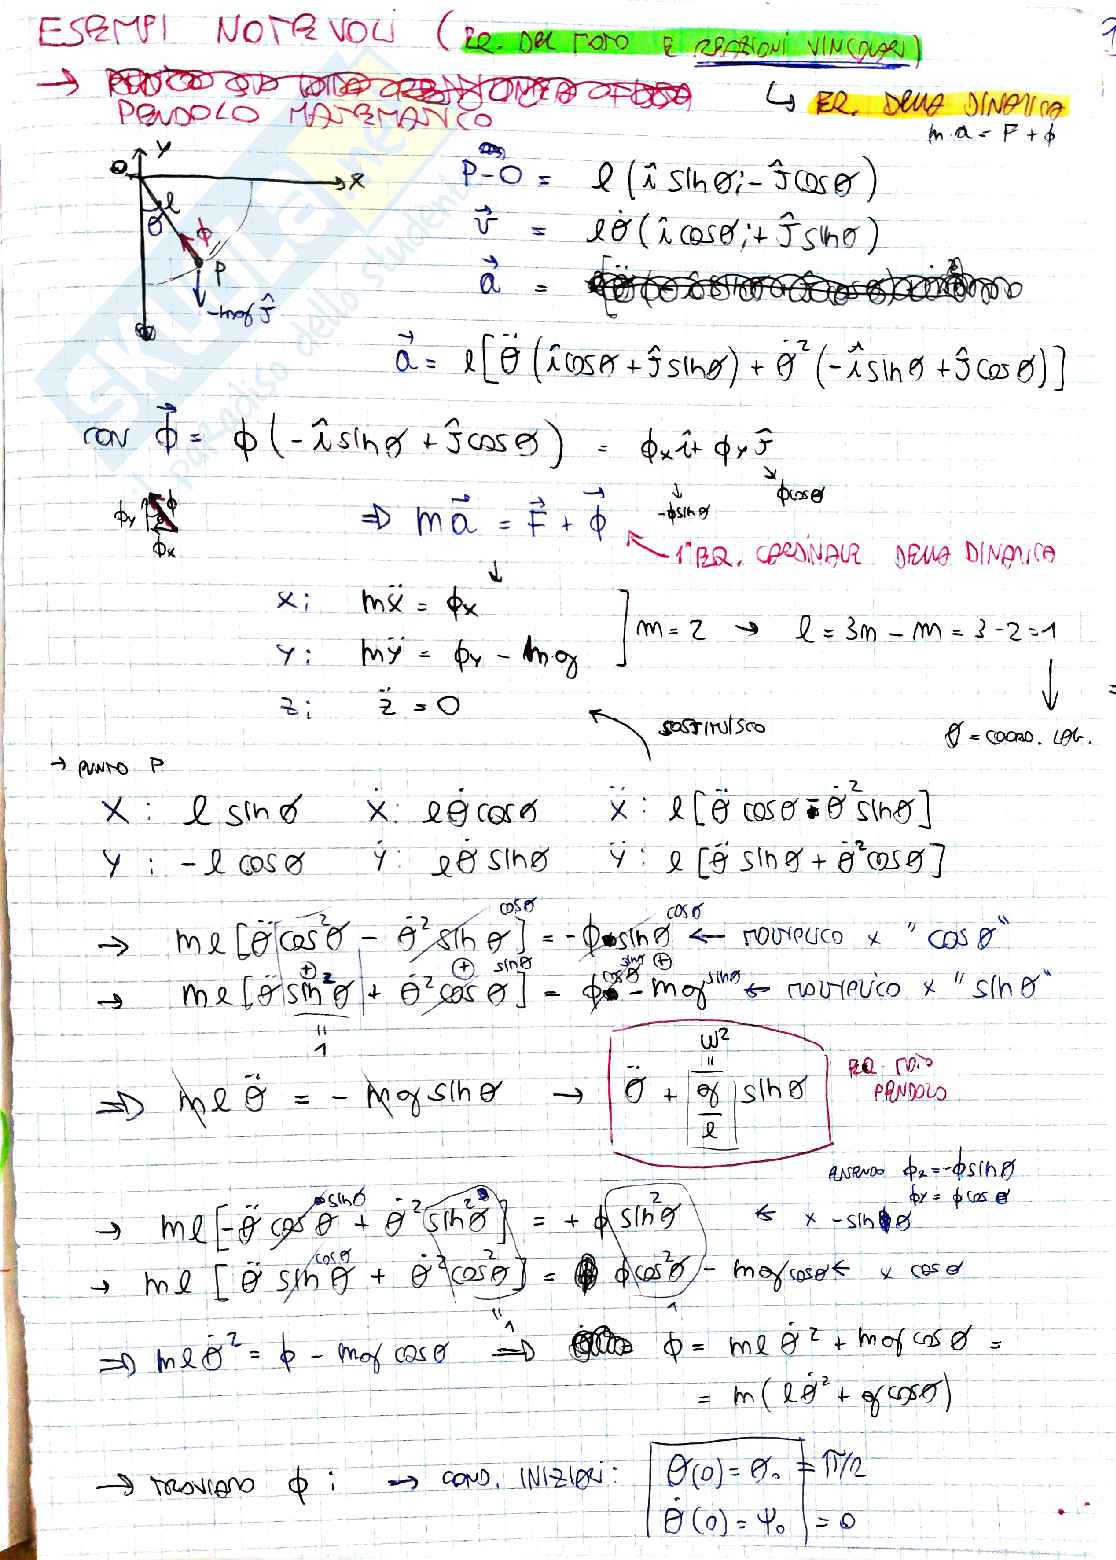 ESEMPI NOTEVOLI (EQ. DEL MOTO E REAZIONI VINCOLARI) 1
→ PENDOLO MATEMATICO
↳ EQ. DELLA DINAMICA
m a = F + ϕ
y
O x
θ l
ϕ
P
-mg ĵ
P-O = l(î sinθ - ĵ cosθ)
v⃗ = lθ̇(î cosθ + ĵ sinθ)
a⃗ =
a⃗ = l[θ̈(î cosθ + ĵ sinθ) + θ̇²(-î sinθ + ĵ cosθ)]
CON ϕ⃗ = ϕ(-î sinθ + ĵ cosθ) = ϕx î + ϕy ĵ
-ϕ sinθ ϕcosθ
ϕy ϕ
ϕx
⇒ m a⃗ = F⃗ + ϕ⃗
1ª EQ. CARDINALE DELLA DINAMICA
x: mẍ = ϕx
y: mÿ = ϕy - mg
z: z̈ = 0
] m = 2 → l = 3n - m = 3-2=1
θ = COORD. LAG.
SOSTITUISCO
→ PUNTO P
X: l sinθ Ẋ: lθ̇ cosθ Ẍ: l[θ̈ cosθ - θ̇² sinθ]
Y: -l cosθ Ẏ: lθ̇ sinθ Ÿ: l[θ̈ sinθ + θ̇² cosθ]
→ ml[θ̈ cos²θ - θ̇² sinθ cosθ] = -ϕ sinθ cosθ ← MOLTIPLICO x "cosθ"
→ ml[θ̈ sin²θ + θ̇² cosθ sinθ] = ϕ cosθ sinθ - mg sinθ ← MOLTIPLICO x "sinθ"
1
⇒ mlθ̈ = -mg sinθ → θ̈ + g/l sinθ
ω²
EQ. MOTO PENDOLO
ESSENDO ϕx = -ϕ sinθ
ϕy = ϕ cosθ
→ ml[-θ̈ cosθ sinθ + θ̇² sin²θ] = + ϕ sin²θ ← x -sinθ
→ ml[θ̈ sinθ cosθ + θ̇² cos²θ] = ϕ cos²θ - mg cosθ ← x cosθ
1 1
⇒ mlθ̇² = ϕ - mg cosθ ⇒ ϕ = mlθ̇² + mg cosθ =
= m(lθ̇² + g cosθ)
→ TROVIAMO ϕ: → COND. INIZIALI: θ(0) = θ₀ = π/2
θ̇(0) = ψ₀ = 0
SKUOLA.net
il paradiso dello studente